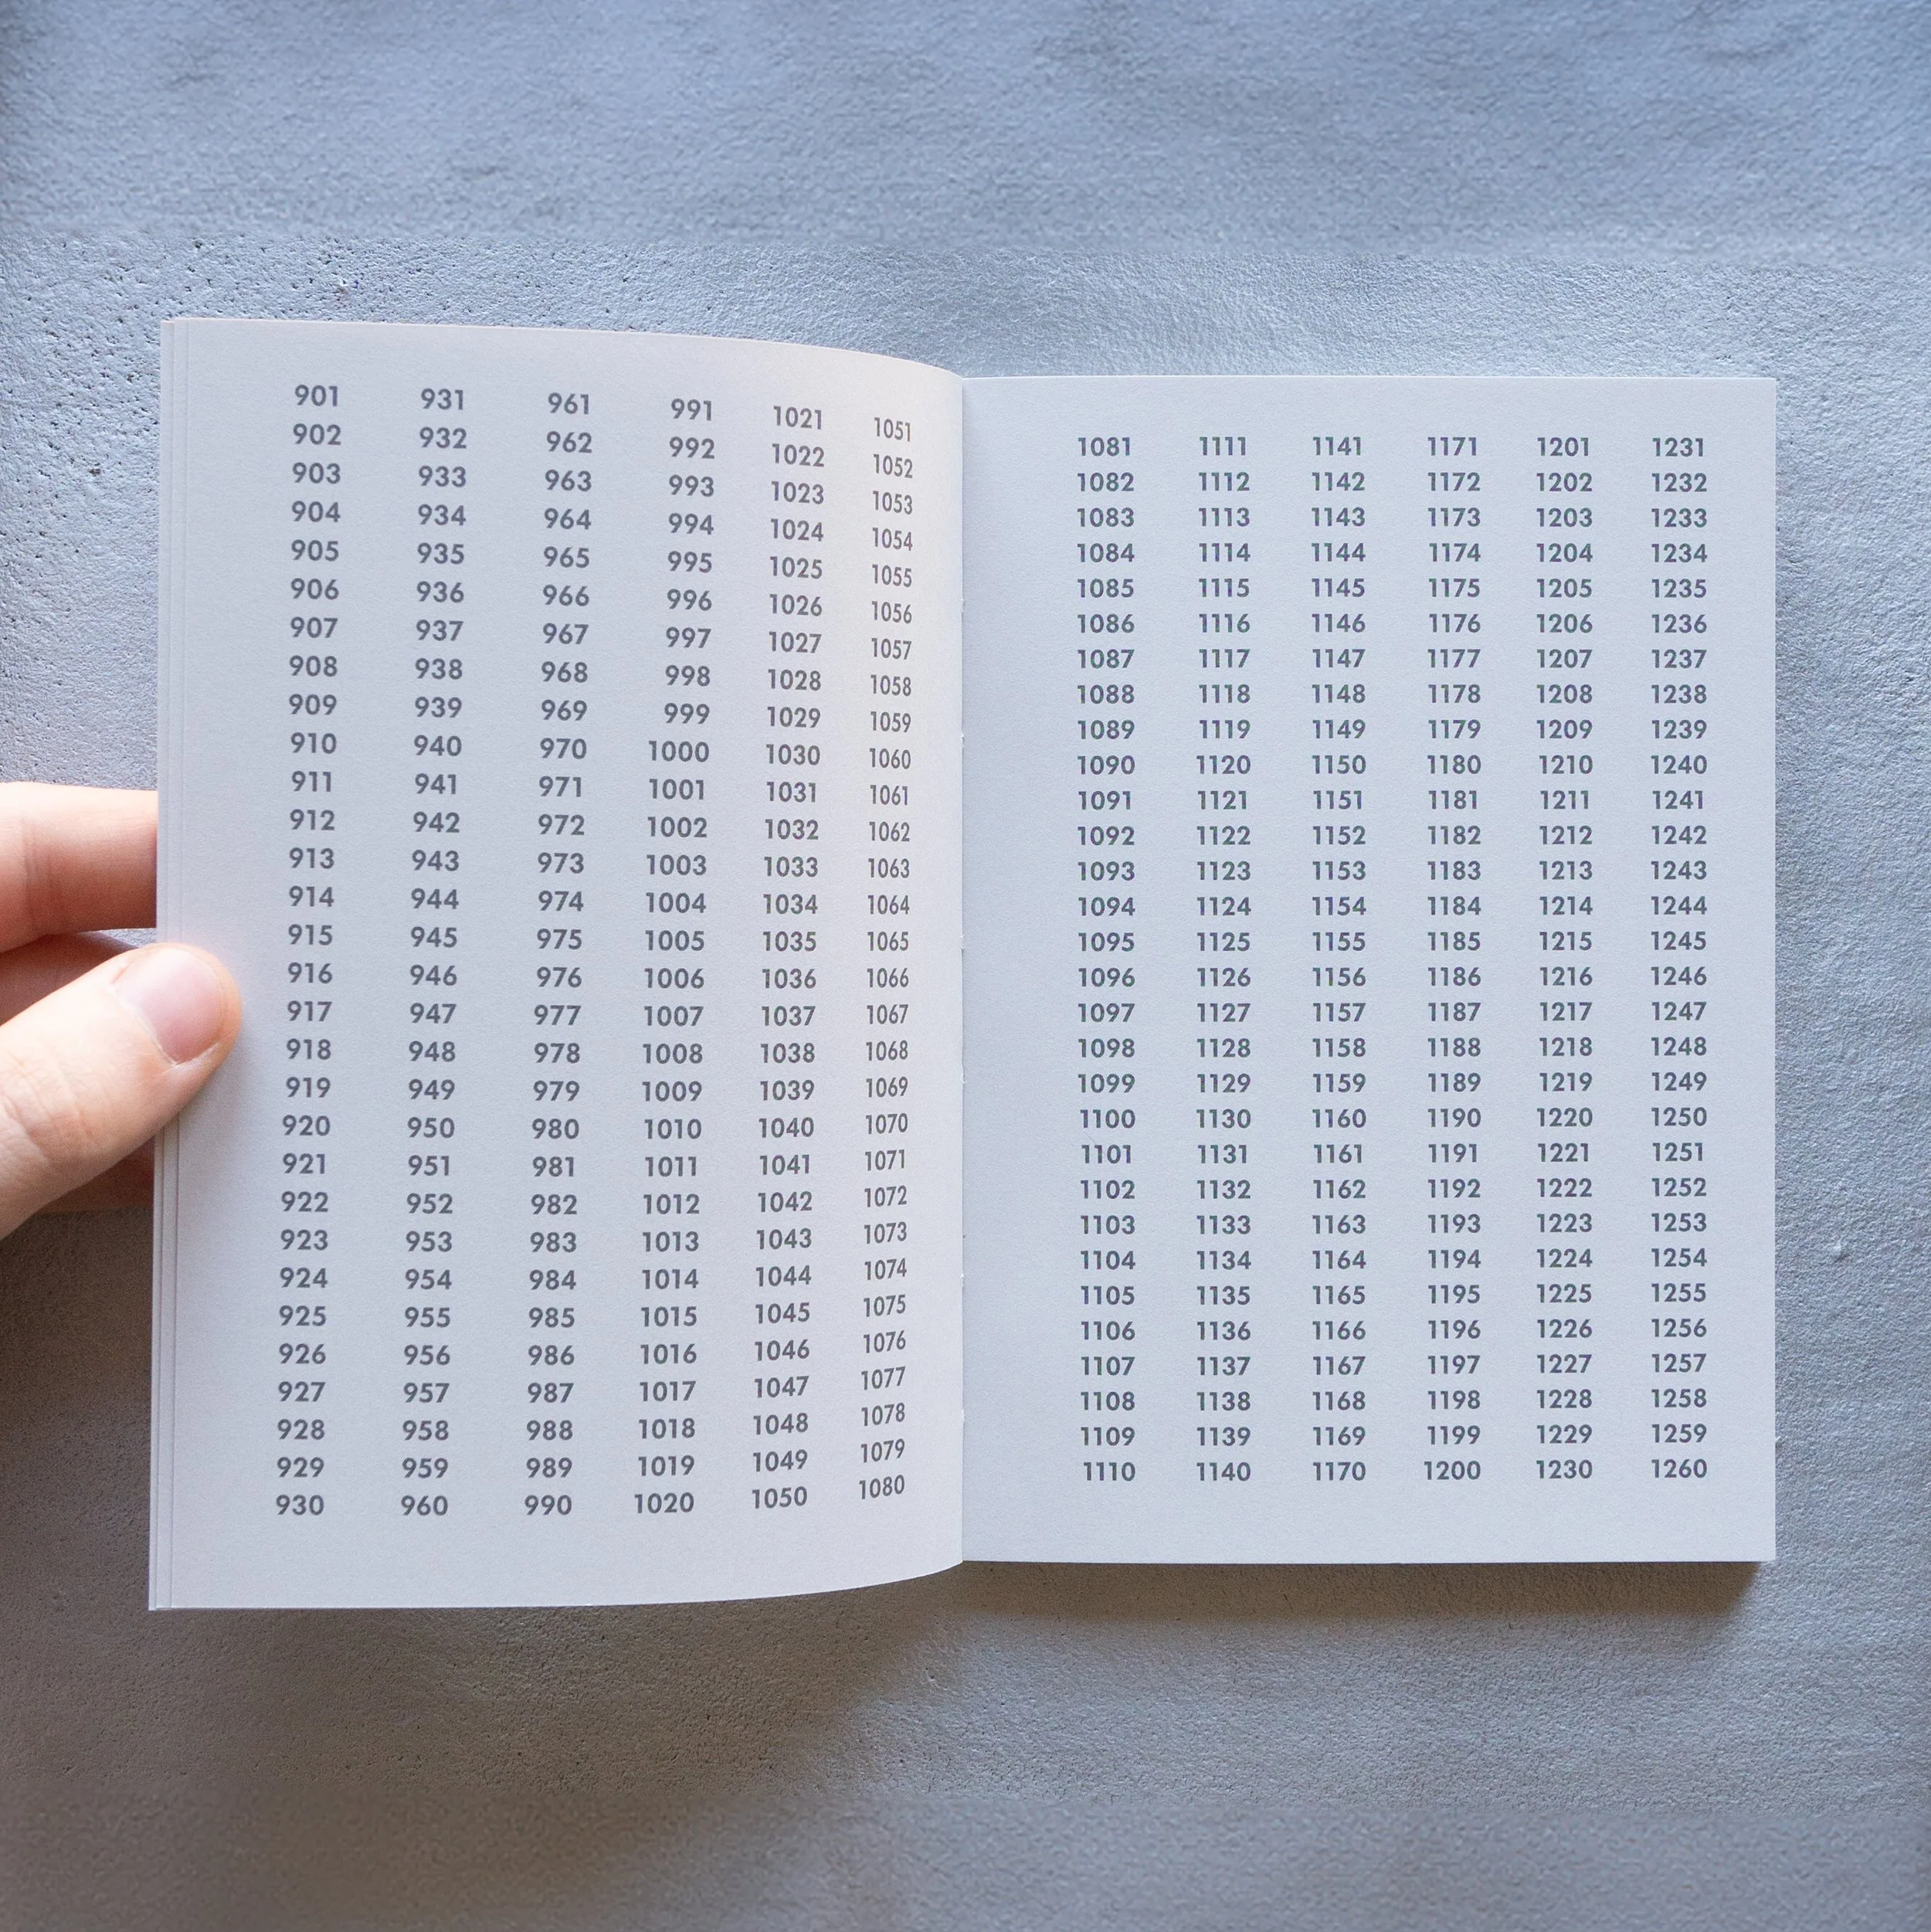 901 931 961 991 1021 1051
902 932 962 992 1022 1052
903 933 963 993 1023 1053
904 934 964 994 1024 1054
905 935 965 995 1025 1055
906 936 966 996 1026 1056
907 937 967 997 1027 1057
908 938 968 998 1028 1058
909 939 969 999 1029 1059
910 940 970 1000 1030 1060
911 941 971 1001 1031 1061
912 942 972 1002 1032 1062
913 943 973 1003 1033 1063
914 944 974 1004 1034 1064
915 945 975 1005 1035 1065
916 946 976 1006 1036 1066
917 947 977 1007 1037 1067
918 948 978 1008 1038 1068
919 949 979 1009 1039 1069
920 950 980 1010 1040 1070
921 951 981 1011 1041 1071
922 952 982 1012 1042 1072
923 953 983 1013 1043 1073
924 954 984 1014 1044 1074
925 955 985 1015 1045 1075
926 956 986 1016 1046 1076
927 957 987 1017 1047 1077
928 958 988 1018 1048 1078
929 959 989 1019 1049 1079
930 960 990 1020 1050 1080
1081 1111 1141 1171 1201 1231
1082 1112 1142 1172 1202 1232
1083 1113 1143 1173 1203 1233
1084 1114 1144 1174 1204 1234
1085 1115 1145 1175 1205 1235
1086 1116 1146 1176 1206 1236
1087 1117 1147 1177 1207 1237
1088 1118 1148 1178 1208 1238
1089 1119 1149 1179 1209 1239
1090 1120 1150 1180 1210 1240
1091 1121 1151 1181 1211 1241
1092 1122 1152 1182 1212 1242
1093 1123 1153 1183 1213 1243
1094 1124 1154 1184 1214 1244
1095 1125 1155 1185 1215 1245
1096 1126 1156 1186 1216 1246
1097 1127 1157 1187 1217 1247
1098 1128 1158 1188 1218 1248
1099 1129 1159 1189 1219 1249
1100 1130 1160 1190 1220 1250
1101 1131 1161 1191 1221 1251
1102 1132 1162 1192 1222 1252
1103 1133 1163 1193 1223 1253
1104 1134 1164 1194 1224 1254
1105 1135 1165 1195 1225 1255
1106 1136 1166 1196 1226 1256
1107 1137 1167 1197 1227 1257
1108 1138 1168 1198 1228 1258
1109 1139 1169 1199 1229 1259
1110 1140 1170 1200 1230 1260